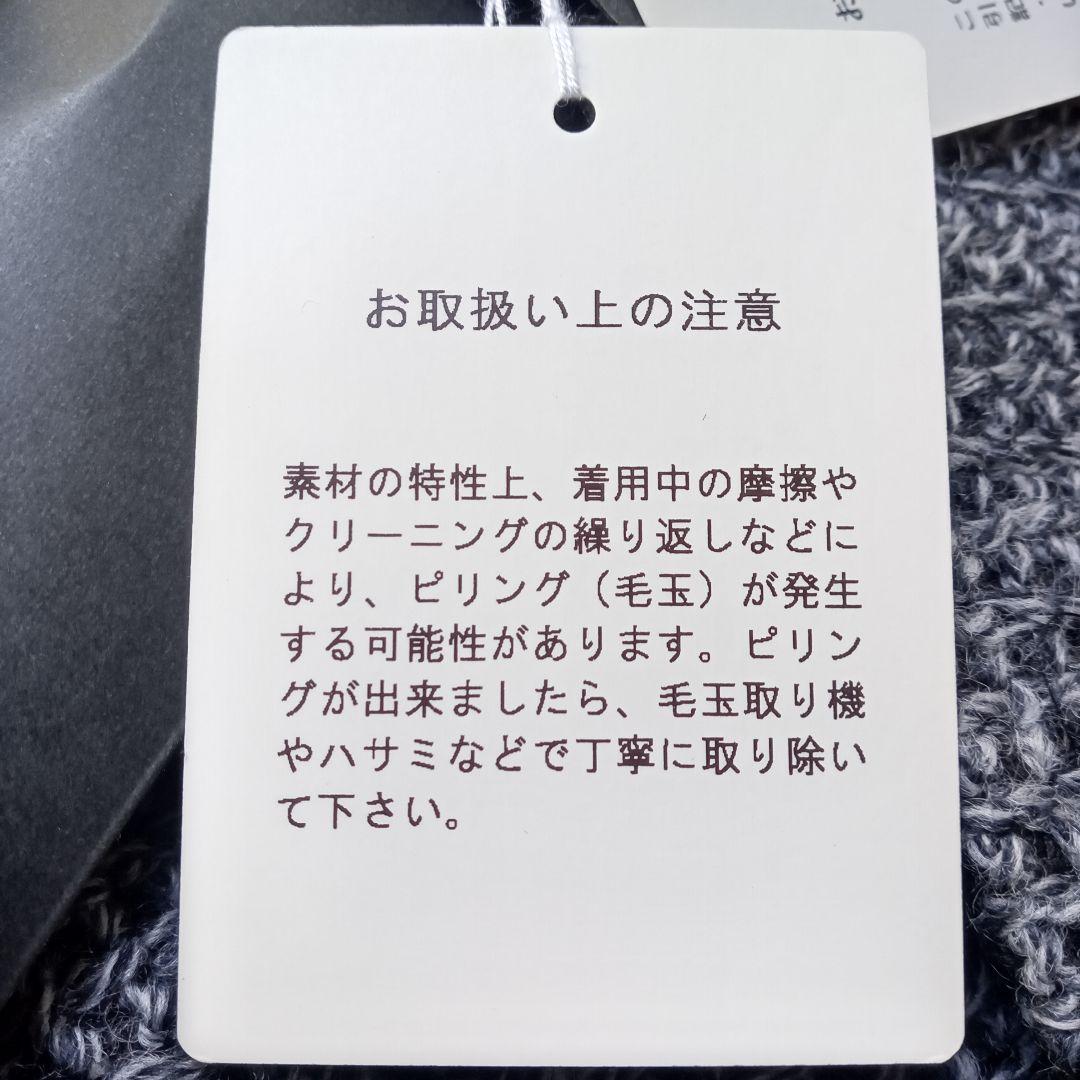 お取扱い上の注意
素材の特性上、着用中の摩擦や
クリーニングの繰り返しなどに
より、ピリング（毛玉）が発生
する可能性があります。ピリン
グが出来ましたら、毛玉取り機
やハサミなどで丁寧に取り除い
て下さい。